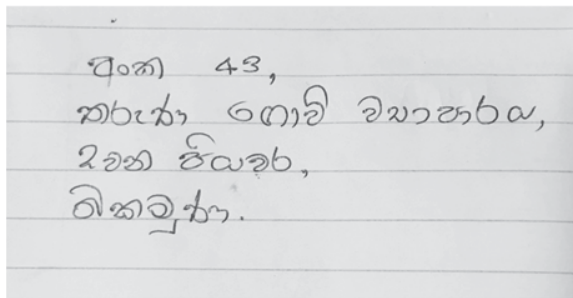 අංක 43,
තරුණ ගොවි ව්‍යාපාරය,
2වන පියවර,
බකමූණ.